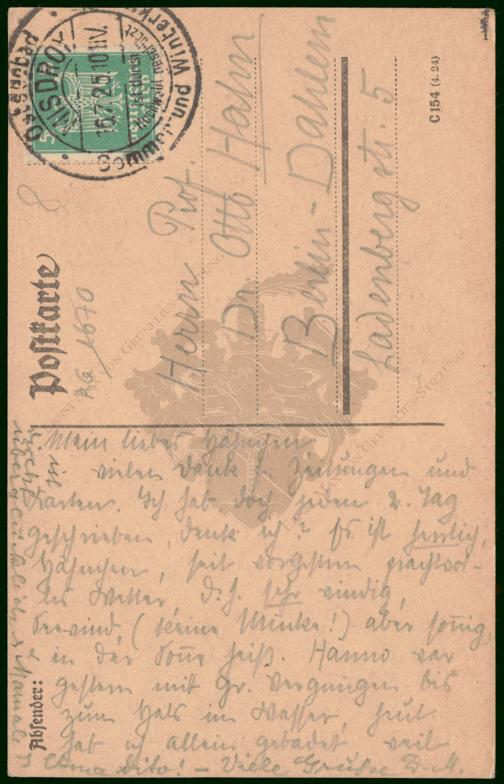 Ostseebad
MISDROY
16.7.25.10-11V.
Sommer- und
Winterkur
5
Postkarte
8
AG 1670
Herrn Prof.
Dr. Otto Hahn
Berlin-Dahlem
Ladenbergstr. 5
C 154 (4.24)
Mein liebes Hähnchen,
vielen Dank f. Zeitungen und
Karten. Ich hab doch jeden 2. Tag
geschrieben, denk ich? Es ist herrlich,
Hähnchen, seit vorgestern prachtvol-
les Wetter, d.h. sehr windig,
Seewind, (keine Mücke!) aber sonnig
u. in der Sonne heiß. Hanno war
gestern mit gr. Vergnügen bis
zum Hals im Wasser, heut
hab ich allein gebadet, weil
Viele Grüße
Absender: